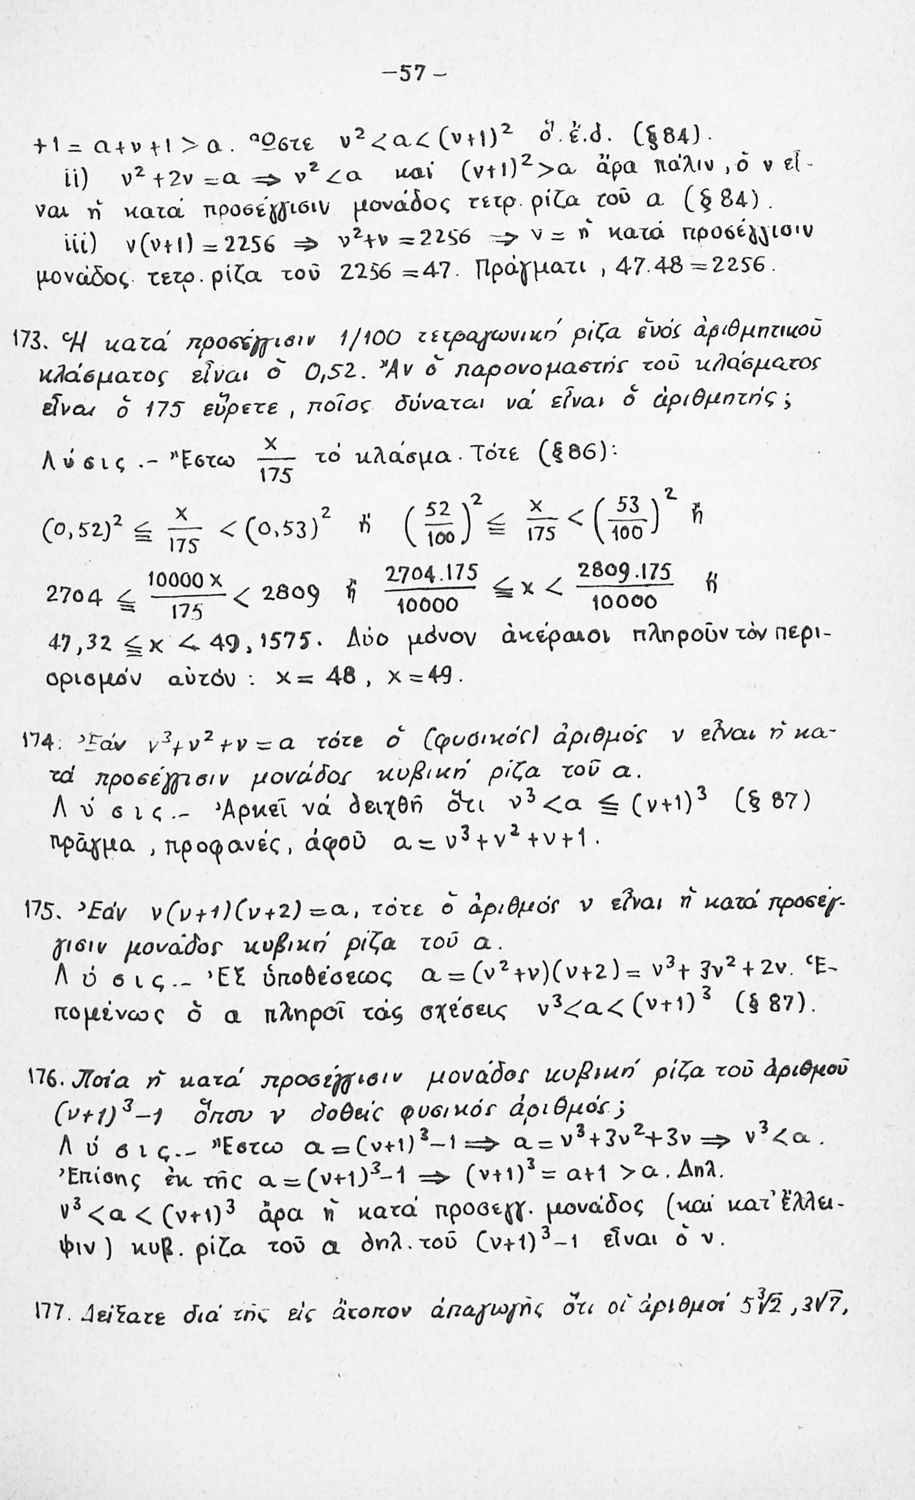 -57-
+1 = α+ν+1 > α. Ὥστε ν² < α < (ν+1)² ὅ.ἔ.δ. (§84).
ii) ν²+2ν = α ⇒ ν² < α καί (ν+1)² > α ἄρα πάλιν, ὁ ν εἶ-
ναι ἡ κατά προσέγγισιν μονάδος τετρ. ρίζα τοῦ α (§84).
iii) ν(ν+1) = 2256 ⇒ ν²+ν = 2256 ⇒ ν = ἡ κατά προσέγγισιν
μονάδος τετρ. ρίζα τοῦ 2256 = 47. Πράγματι, 47.48 = 2256.
173. Ἡ κατά προσέγγισιν 1/100 τετραγωνική ρίζα ἑνός ἀριθμητικοῦ
κλάσματος εἶναι ὁ 0,52. Ἄν ὁ παρονομαστής τοῦ κλάσματος
εἶναι ὁ 175 εὕρετε, ποῖος δύναται νά εἶναι ὁ ἀριθμητής;
Λύσις.- Ἔστω x/175 τό κλάσμα. Τότε (§86):
(0,52)² ≦ x/175 < (0,53)² ἤ (52/100)² ≦ x/175 < (53/100)² ἤ
2704 ≦ 10000x/175 < 2809 ἤ 2704.175/10000 ≦ x < 2809.175/10000 ἤ
47,32 ≦ x < 49,1575. Δύο μόνον ἀκέραιοι πληροῦν τόν περι-
ορισμόν αὐτόν: x = 48, x = 49.
174. Ἐάν ν³+ν²+ν = α τότε ὁ (φυσικός) ἀριθμός ν εἶναι ἡ κα-
τά προσέγγισιν μονάδος κυβική ρίζα τοῦ α.
Λύσις.- Ἀρκεῖ νά δειχθῆ ὅτι ν³ < α ≦ (ν+1)³ (§87)
πρᾶγμα, προφανές, ἀφοῦ α = ν³+ν²+ν+1.
175. Ἐάν ν(ν+1)(ν+2) = α, τότε ὁ ἀριθμός ν εἶναι ἡ κατά προσέγ-
γισιν μονάδος κυβική ρίζα τοῦ α.
Λύσις.- Ἐξ ὑποθέσεως α = (ν²+ν)(ν+2) = ν³+3ν²+2ν. Ἑ-
πομένως ὁ α πληροῖ τάς σχέσεις ν³ < α < (ν+1)³ (§87).
176. Ποία ἡ κατά προσέγγισιν μονάδος κυβική ρίζα τοῦ ἀριθμοῦ
(ν+1)³-1 ὅπου ν δοθείς φυσικός ἀριθμός;
Λύσις.- Ἔστω α = (ν+1)³-1 ⇒ α = ν³+3ν²+3ν ⇒ ν³ < α.
Ἐπίσης ἐκ τῆς α = (ν+1)³-1 ⇒ (ν+1)³ = α+1 > α. Δηλ.
ν³ < α < (ν+1)³ ἄρα ἡ κατά προσεγγ. μονάδος (καί κατ' ἔλλει-
ψιν) κυβ. ρίζα τοῦ α δηλ. τοῦ (ν+1)³-1 εἶναι ὁ ν.
177. Δείξατε διά τῆς εἰς ἄτοπον ἀπαγωγῆς ὅτι οἱ ἀριθμοί 5∛2, 3√7,